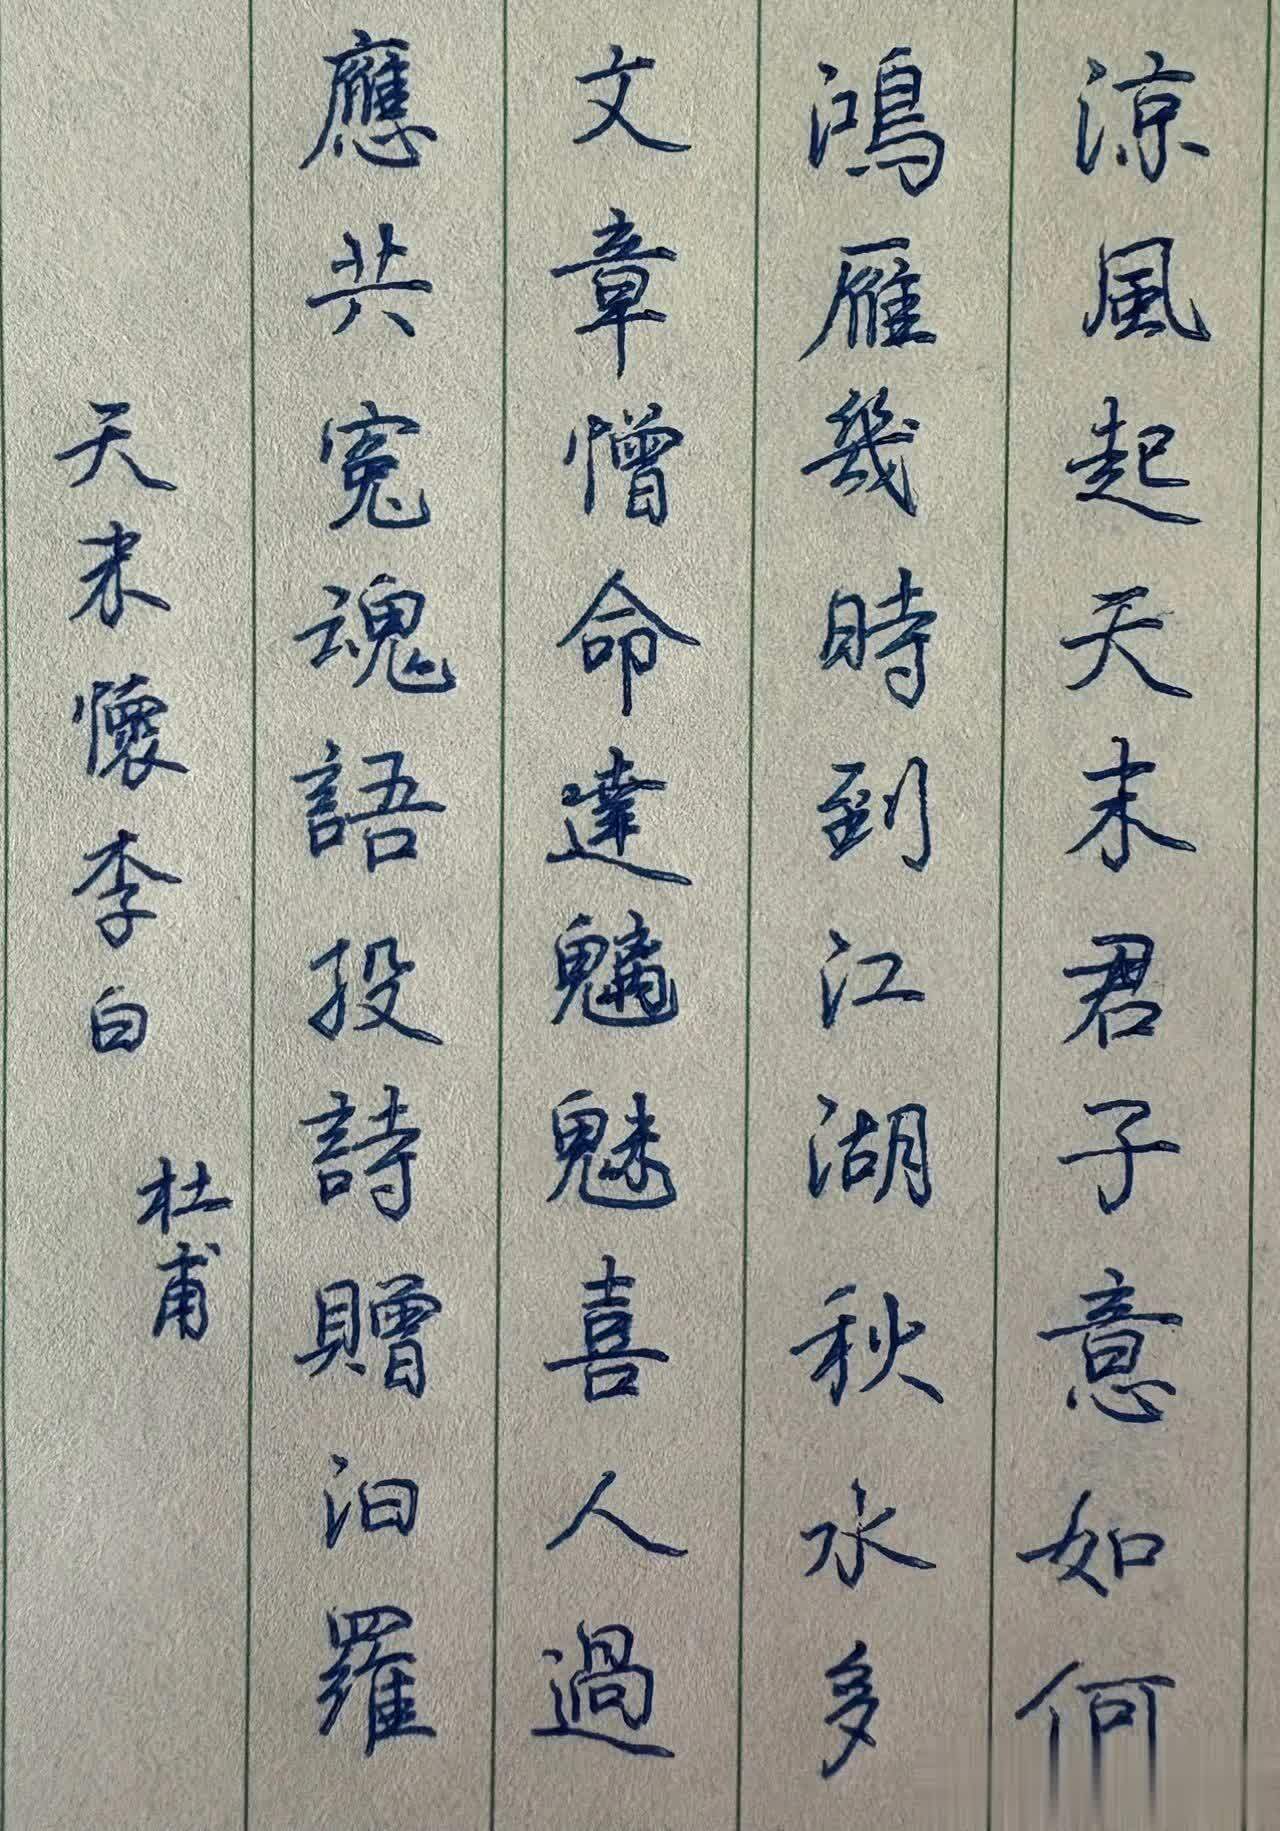 涼風起天末君子意如何
鴻雁幾時到江湖秋水多
文章憎命達魑魅喜人過
應共冤魂語投詩贈汨羅
天末懷李白
杜甫